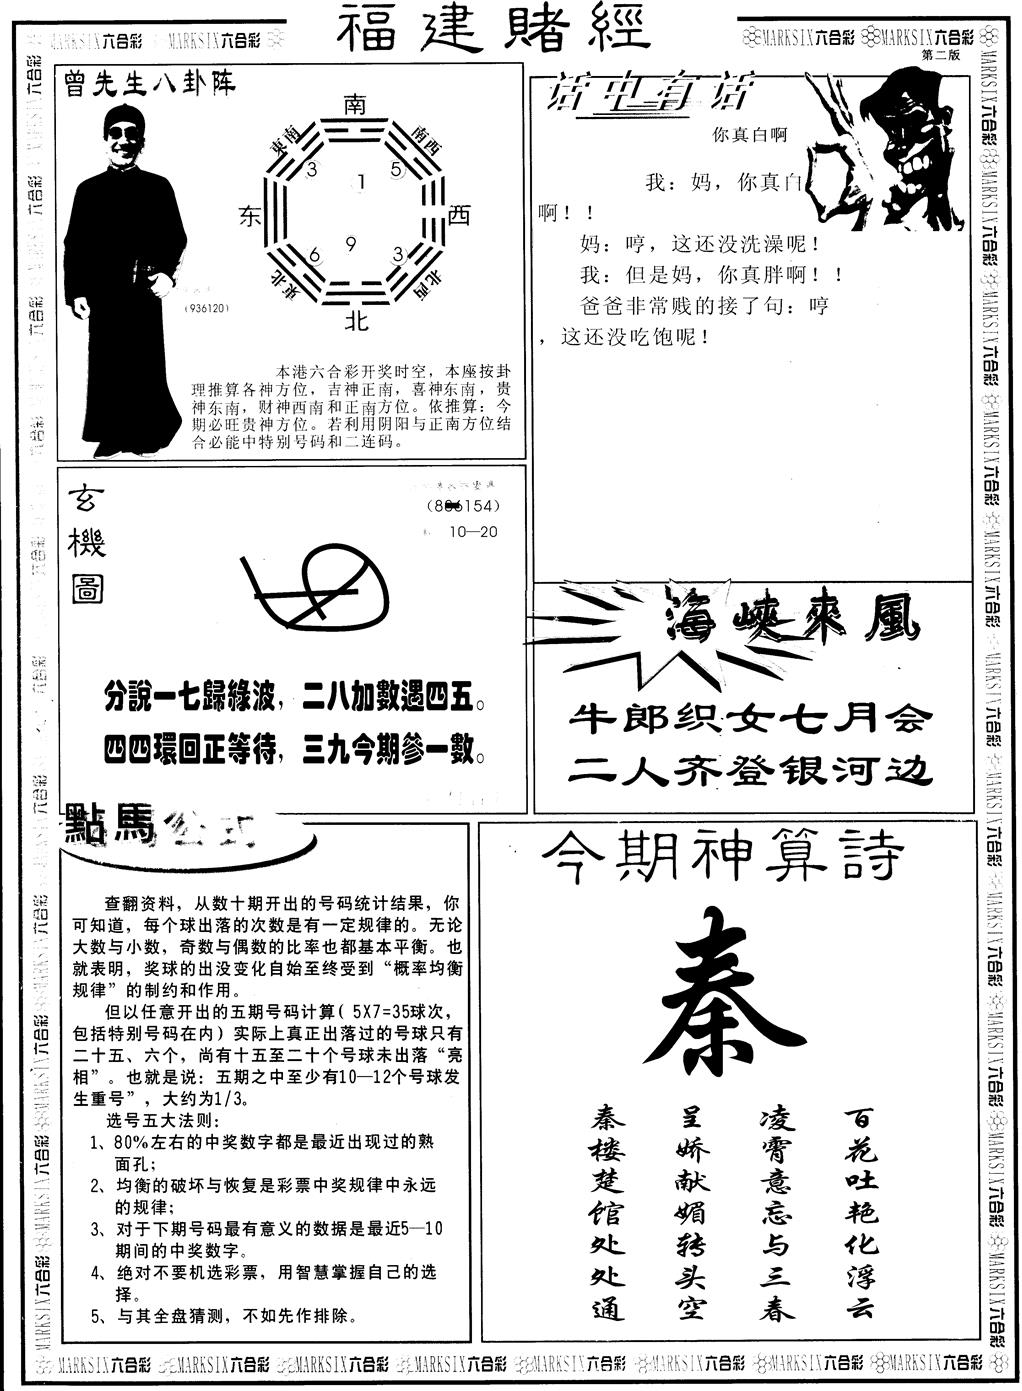 福建賭經
MARKSIX六合彩 MARKSIX六合彩
MARKSIX六合彩 MARKSIX六合彩
第二版
曾先生八卦阵
南
東南
南西
3
5
1
东
西
6
9
3
東北
北西
北
(936120)
本港六合彩开奖时空，本座按卦
理推算各神方位，吉神正南，喜神东南，贵
神东南，财神西南和正南方位。依推算：今
期必旺贵神方位。若利用阴阳与正南方位结
合必能中特别号码和二连码。
话中有话
你真白啊
我：妈，你真白
啊！！
妈：哼，这还没洗澡呢！
我：但是妈，你真胖啊！！
爸爸非常贱的接了句：哼
，这还没吃饱呢！
玄機圖
10—20
分說一七歸綠波，二八加數遇四五。
四四環回正等待，三九今期參一數。
海峽來風
牛郎织女七月会
二人齐登银河边
點馬公式
查翻资料，从数十期开出的号码统计结果，你
可知道，每个球出落的次数是有一定规律的。无论
大数与小数，奇数与偶数的比率也都基本平衡。也
就表明，奖球的出没变化自始至终受到“概率均衡
规律”的制约和作用。
但以任意开出的五期号码计算（5X7=35球次，
包括特别号码在内）实际上真正出落过的号球只有
二十五、六个，尚有十五至二十个号球未出落“亮
相”。也就是说：五期之中至少有10—12个号球发
生重号”，大约为1/3。
选号五大法则：
1、80%左右的中奖数字都是最近出现过的熟
面孔；
2、均衡的破坏与恢复是彩票中奖规律中永远
的规律；
3、对于下期号码最有意义的数据是最近5—10
期间的中奖数字。
4、绝对不要机选彩票，用智慧掌握自己的选
择。
5、与其全盘猜测，不如先作排除。
今期神算詩
秦
百花吐艳化浮云
凌霄意忘与三春
呈娇献媚转头空
秦楼楚馆处处通
MARKSIX六合彩 MARKSIX六合彩 MARKSIX六合彩 MARKSIX六合彩 MARKSIX六合彩 MARKSIX六合彩 MARKSIX六合彩 MARKSIX六合彩